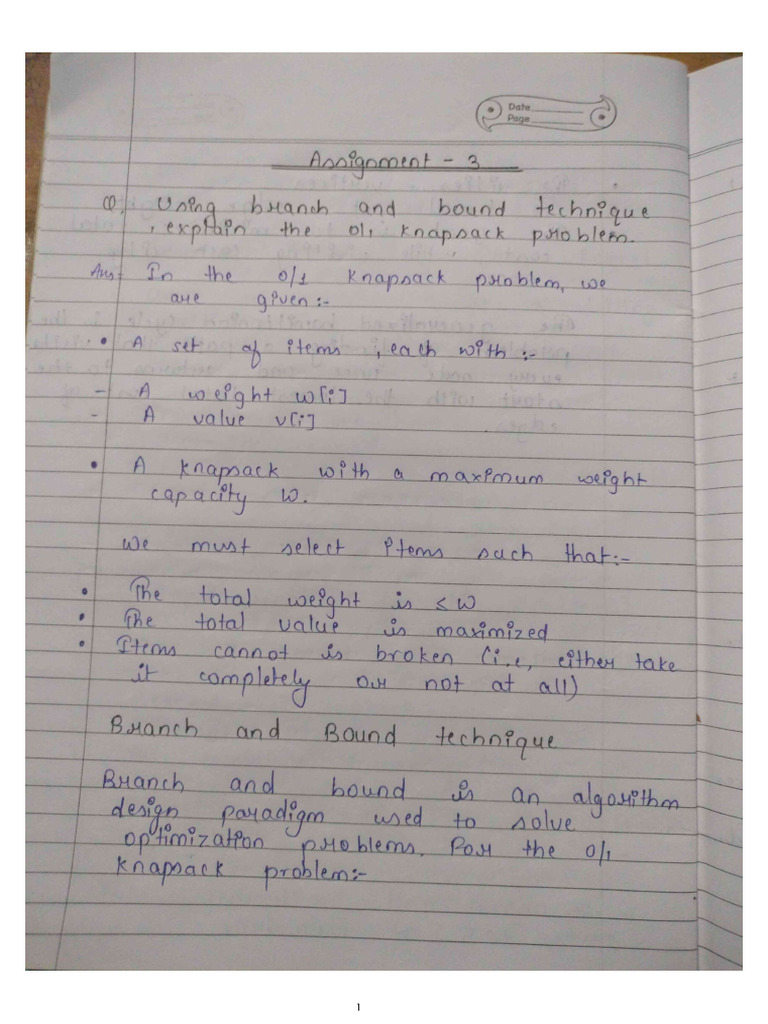 Date
Page
Assignment - 3
Q. Using branch and bound technique
, explain the 0/1 knapsack problem.
Ans In the 0/1 knapsack problem, we
are given:-
• A set of items, each with :-
- A weight w[i]
- A value v[i]
• A knapsack with a maximum weight
capacity W.
We must select items such that:-
• The total weight is ≤ W
• The total value is maximized
• Items cannot is broken (i.e, either take
it completely or not at all)
Branch and Bound technique
Branch and bound is an algorithm
design paradigm used to solve
optimization problems. For the 0/1
knapsack problem:-
1